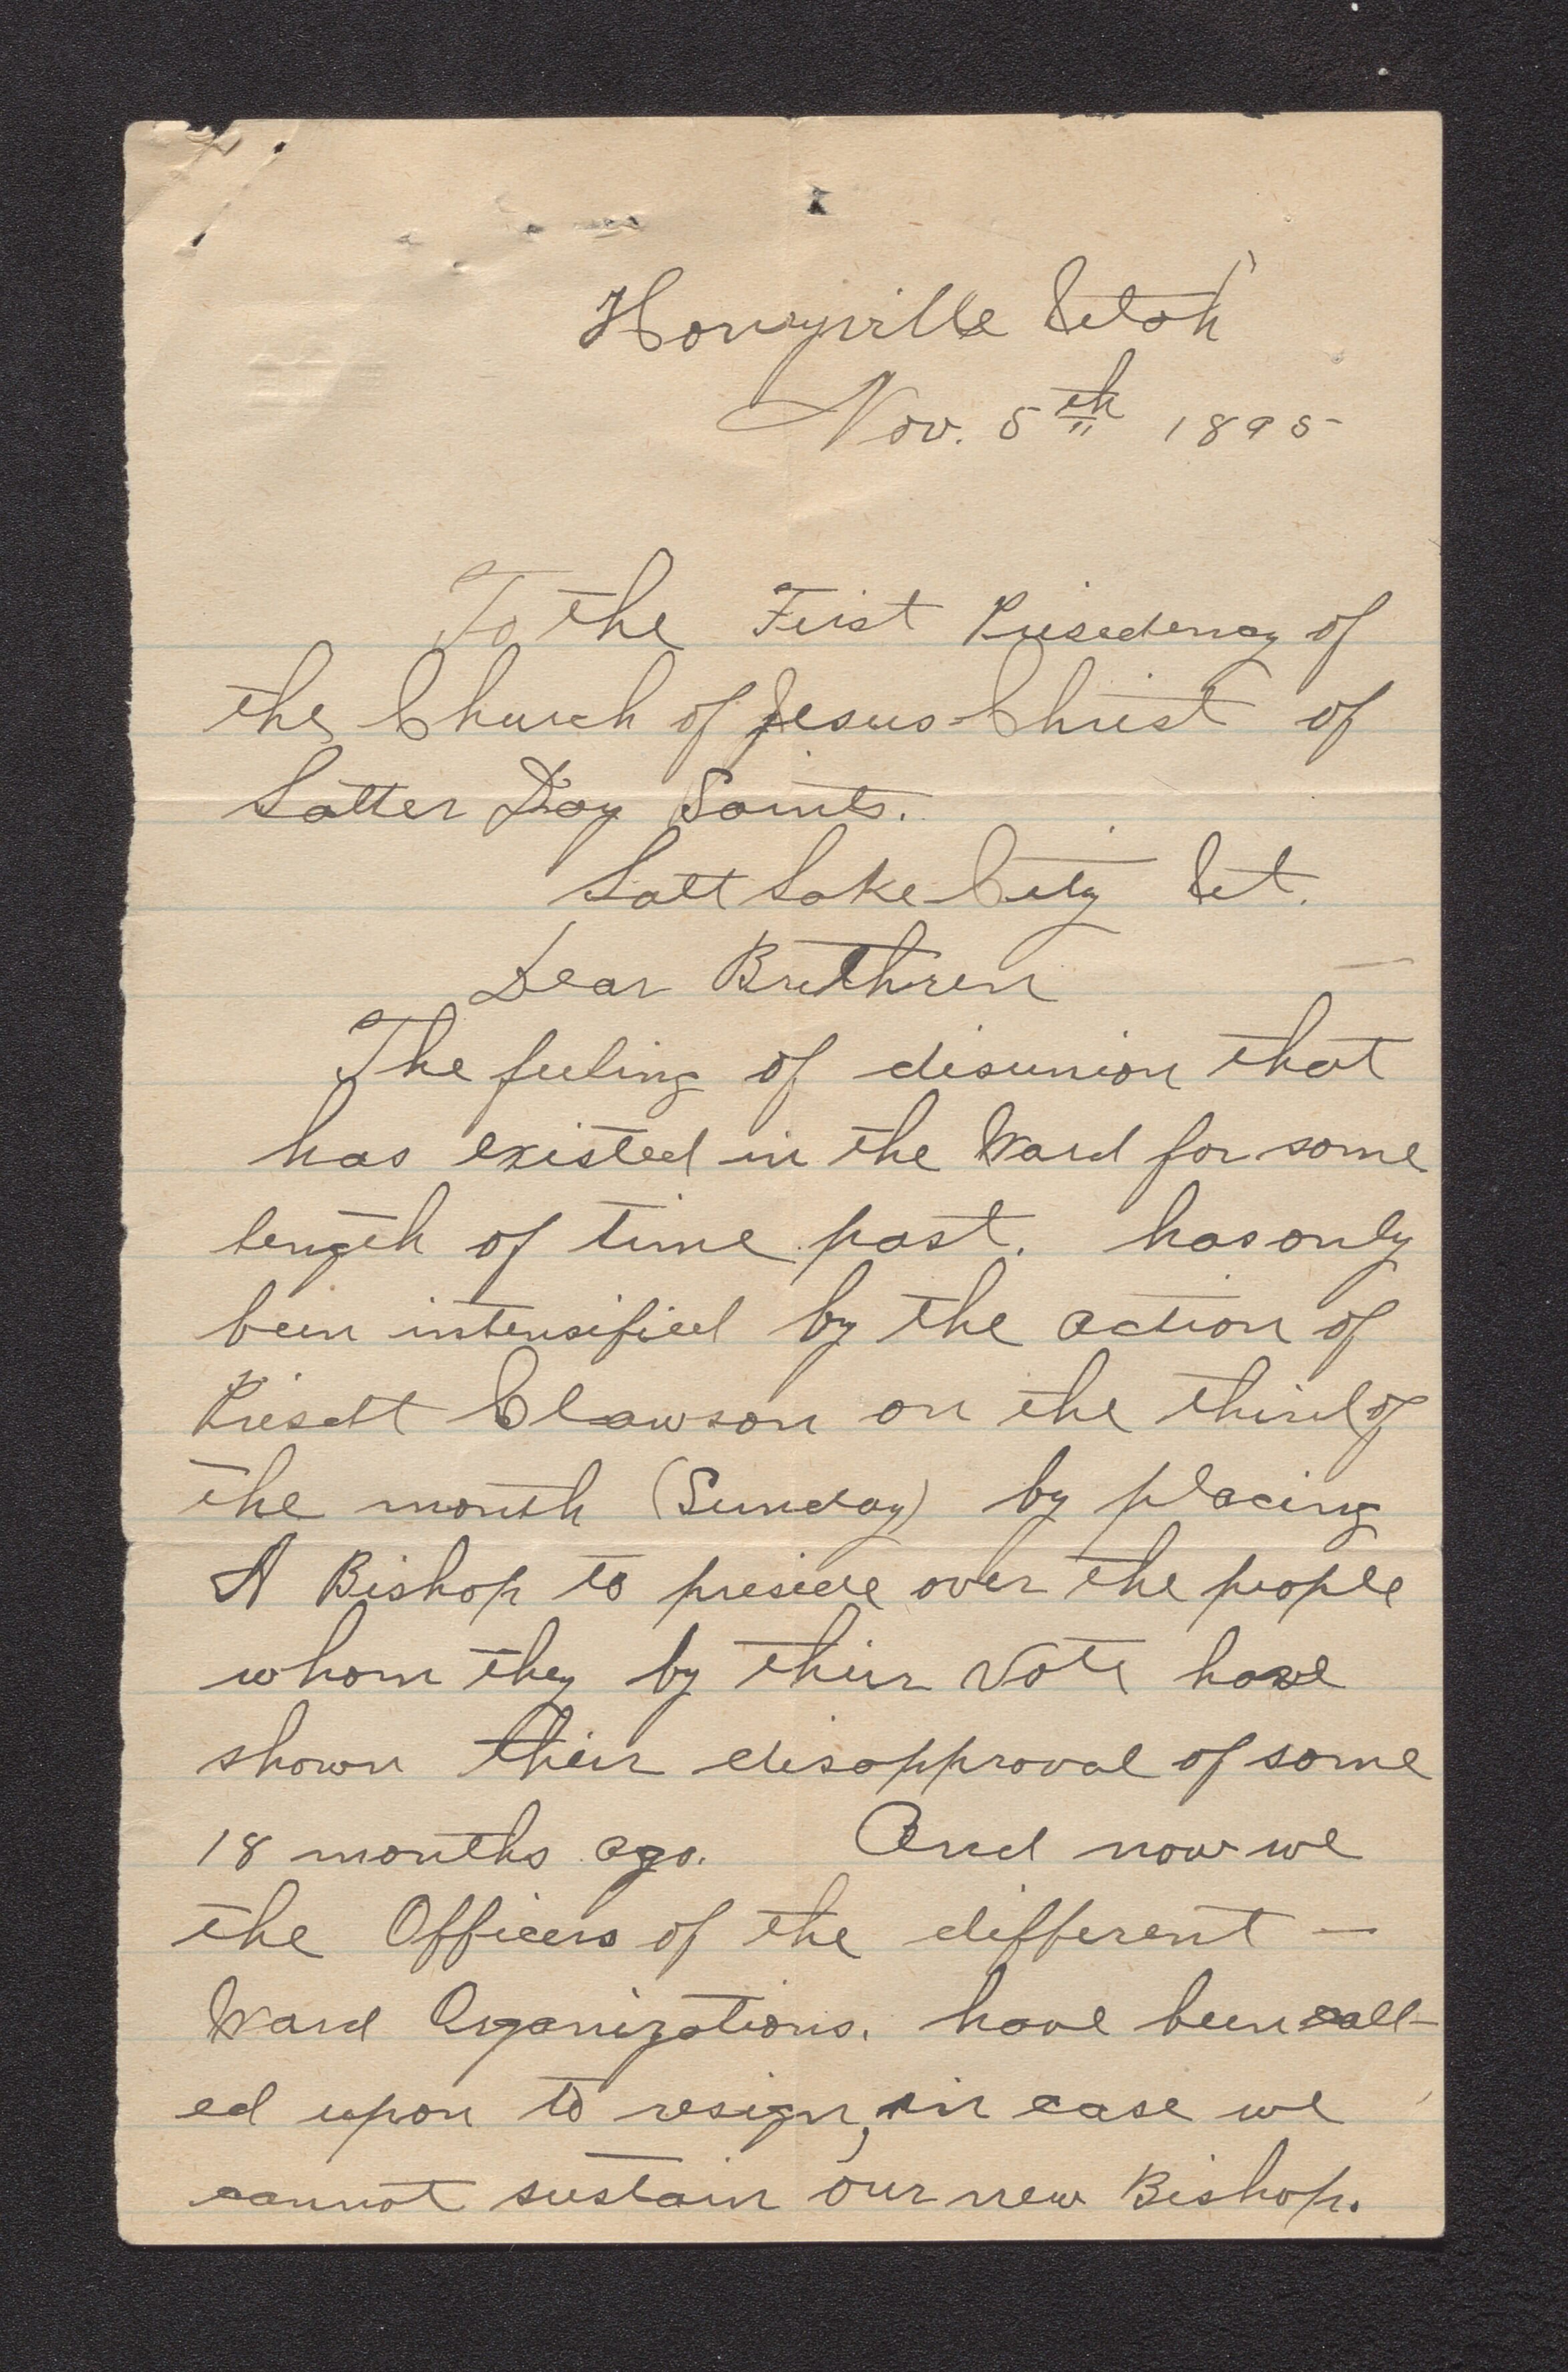 Honeyville Utah
Nov. 5th 1895
To the First Presidency of
the Church of Jesus Christ of
Latter Day Saints.
Salt Lake City Ut.
Dear Brethren
The feeling of disunion that
has existed in the Ward for some
length of time past. has only
been intensified by the action of
Presdt Clawson on the third of
the month (Sunday) by placing
A Bishop to preside over the people
whom they by their vote have
shown their disapproval of some
18 months ago. And now we
the Officers of the different —
Ward Organizations. have been call-
ed upon to resign, in case we
cannot sustain our new Bishop.